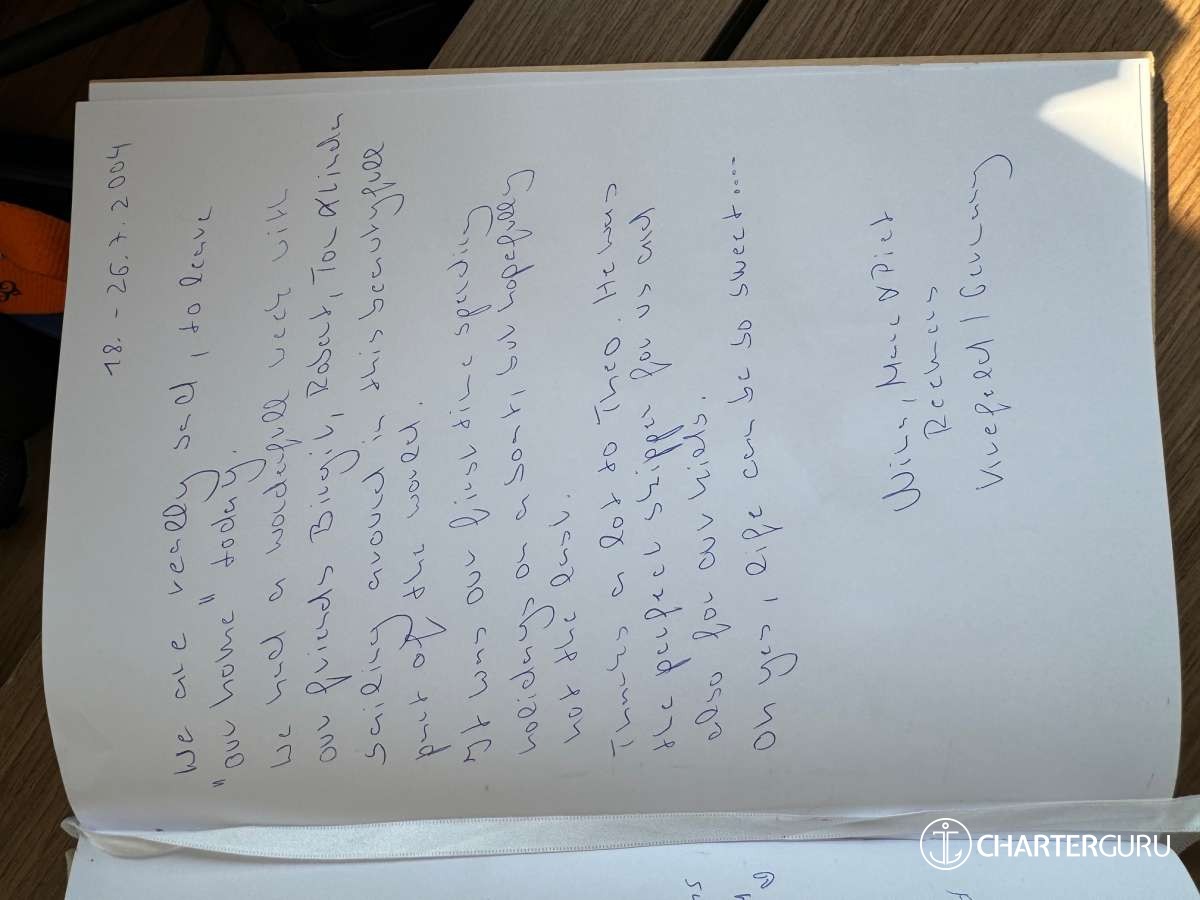 18. - 26.7.2004
We are really sad, to leave
"our home" today.
We had a wonderfull week with
our friends Birgit, Robert, Tom & Linda
sailing around in this beautyfull
part of the world.
It was our first time spending
holidays on a boat, but hopefully
not the last.
Thanks a lot to Theo. He was
the perfect skipper for us and
also for our kids.
Oh yes, life can be so sweet....
& Piet
Germany
CHARTERGURU